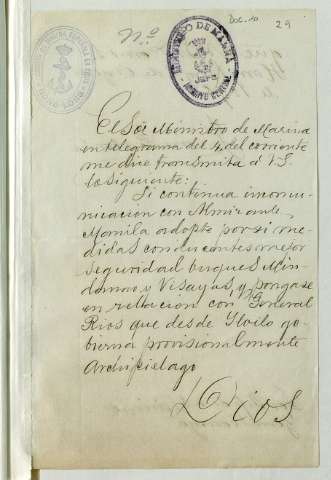 Doc. 10
29
Nº
MINISTERIO DE MARINA
ARCHIVO CENTRAL
El Sor Ministro de Marina
en telegrama del 4 del corriente
me dice transmita á V.S.
lo siguiente:
Si continua incomu-
nicacion con Almirante
Manila adopte por si me-
didas conducentes mejor
seguridad buques Min-
danao y Visayas, y pongase
en relacion con General
Rios que desde Yloilo go-
bierna provisionalmente
Archipielago
Dios